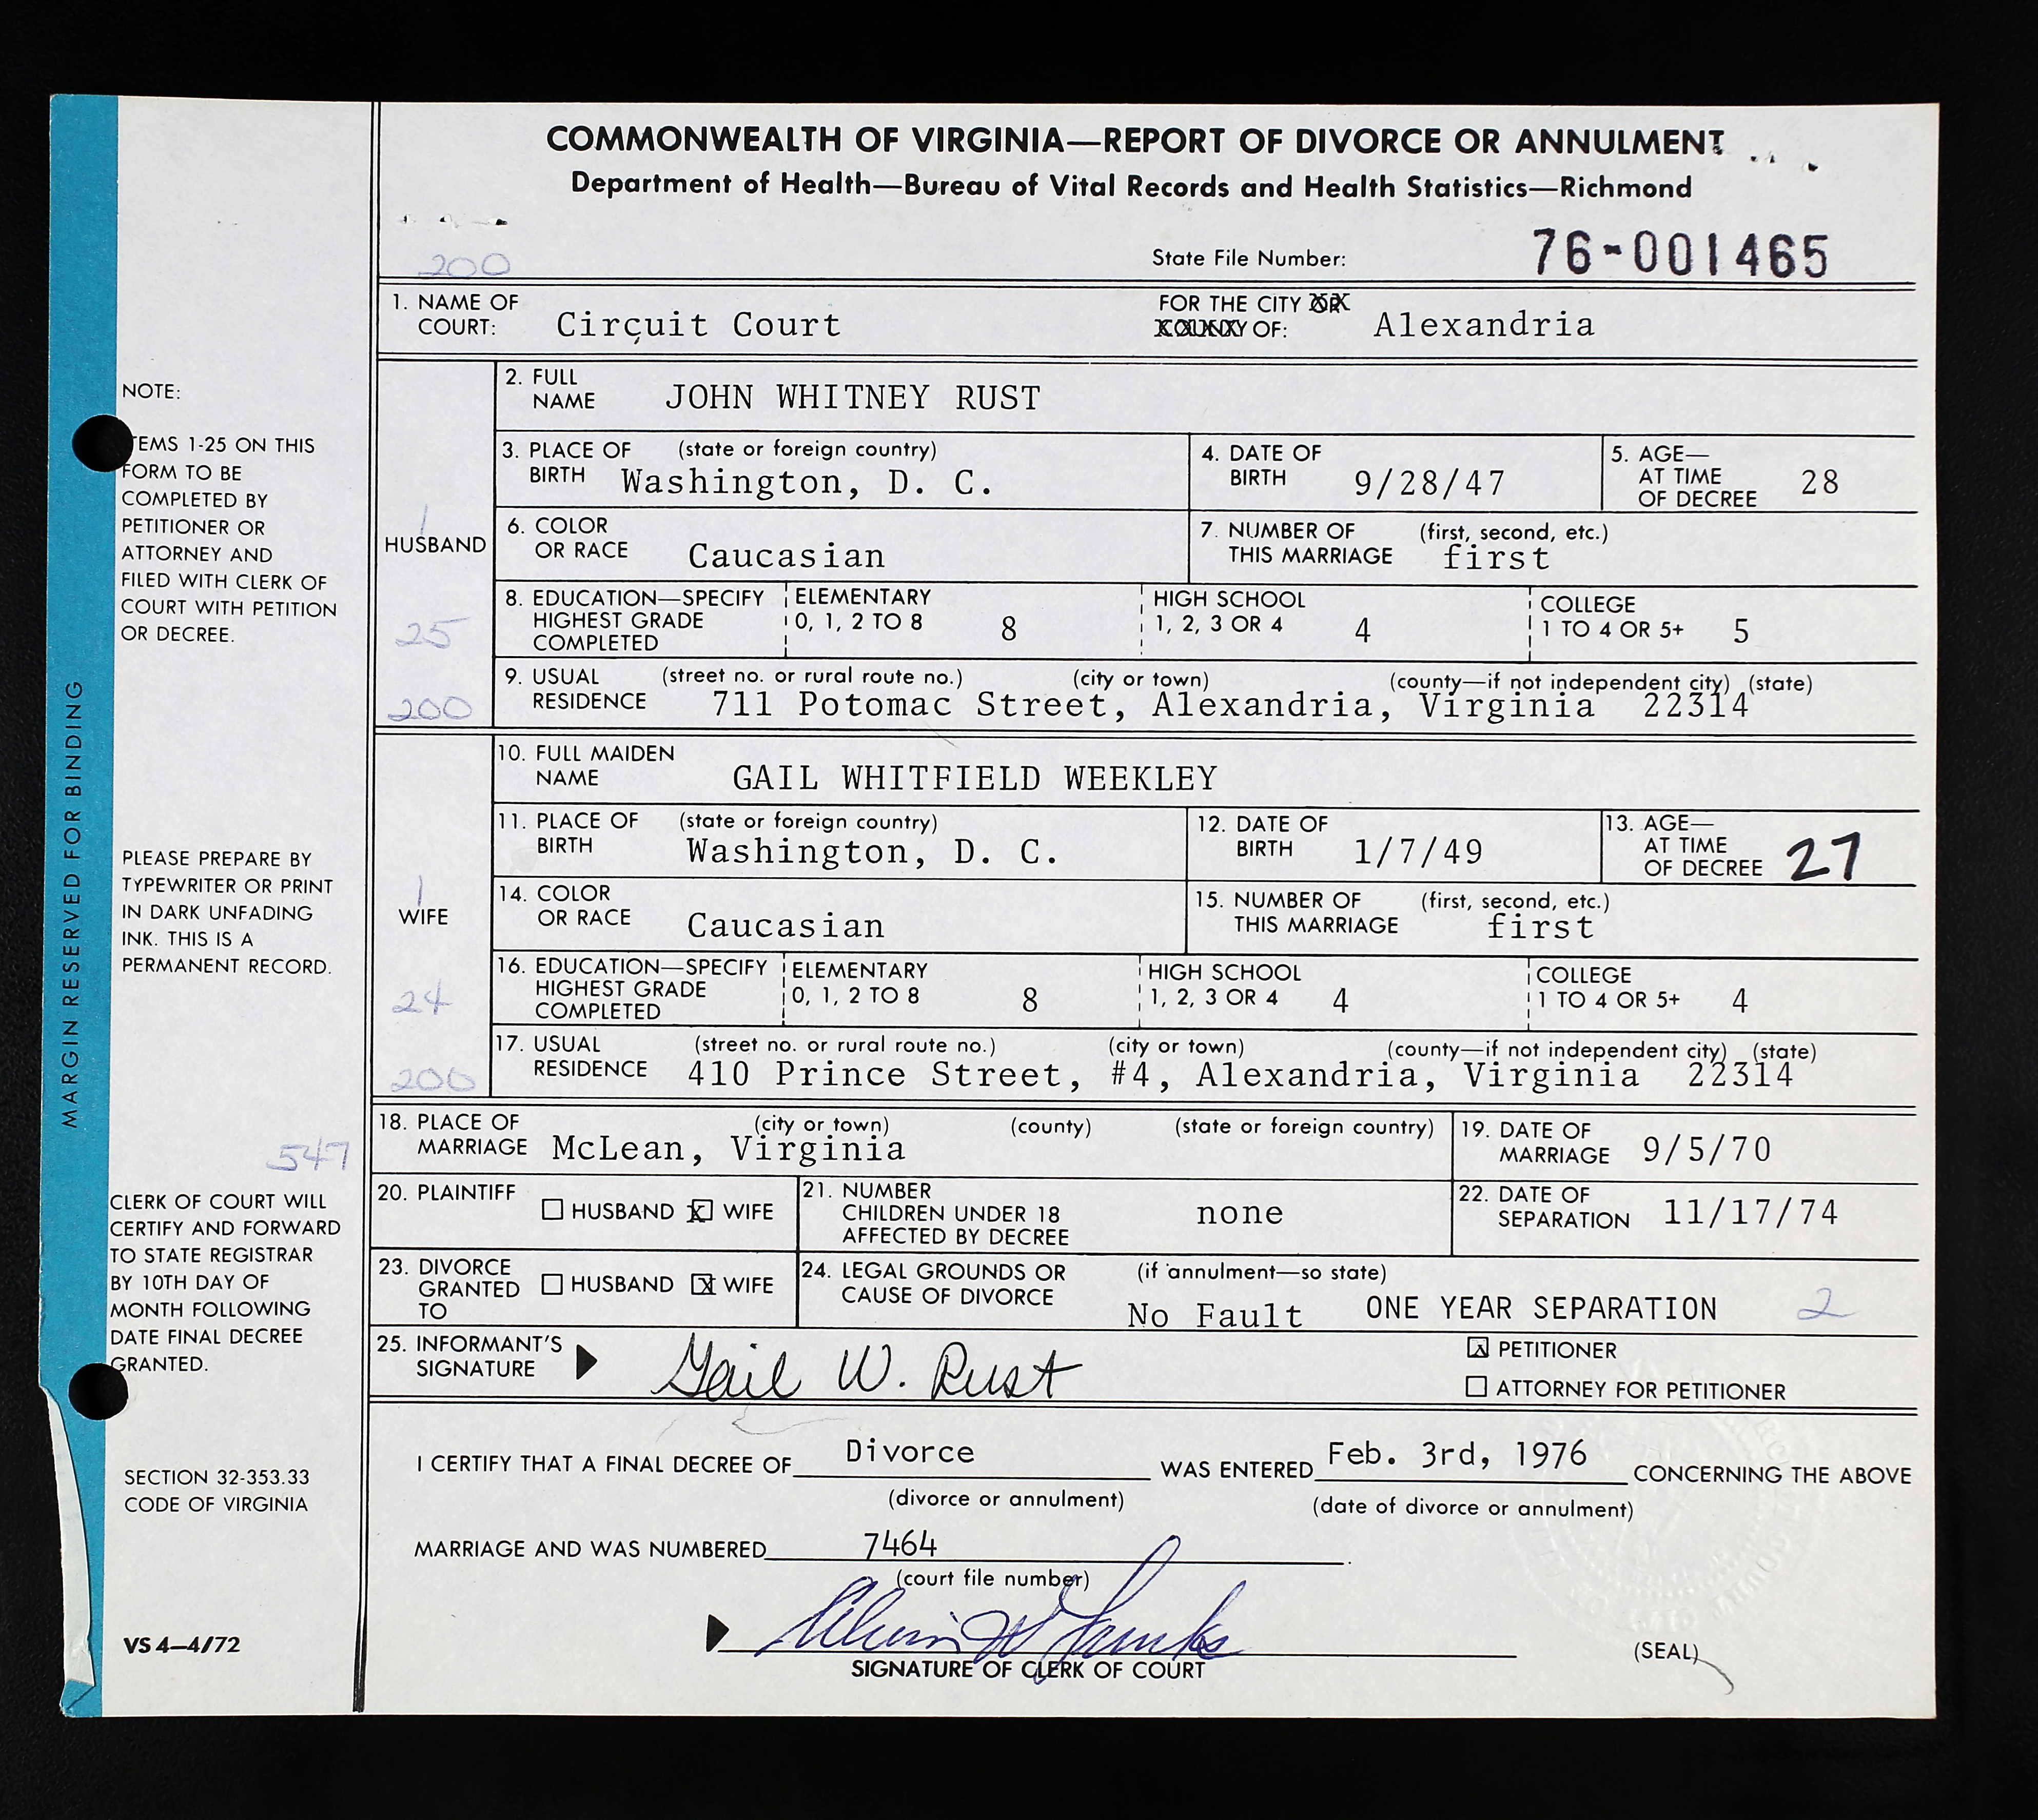 COMMONWEALTH OF VIRGINIA—REPORT OF DIVORCE OR ANNULMENT
Department of Health—Bureau of Vital Records and Health Statistics—Richmond
200
State File Number: 76-001465
1. NAME OF COURT: Circuit Court FOR THE CITY OR COUNTY OF: Alexandria
HUSBAND
1
25
200
2. FULL NAME JOHN WHITNEY RUST
3. PLACE OF BIRTH (state or foreign country) Washington, D. C.
4. DATE OF BIRTH 9/28/47
5. AGE— AT TIME OF DECREE 28
6. COLOR OR RACE Caucasian
7. NUMBER OF THIS MARRIAGE (first, second, etc.) first
8. EDUCATION—SPECIFY HIGHEST GRADE COMPLETED ELEMENTARY 0, 1, 2 TO 8 8 HIGH SCHOOL 1, 2, 3 OR 4 4 COLLEGE 1 TO 4 OR 5+ 5
9. USUAL RESIDENCE (street no. or rural route no.) (city or town) (county—if not independent city) (state)
711 Potomac Street, Alexandria, Virginia 22314
WIFE
1
24
200
10. FULL MAIDEN NAME GAIL WHITFIELD WEEKLEY
11. PLACE OF BIRTH (state or foreign country) Washington, D. C.
12. DATE OF BIRTH 1/7/49
13. AGE— AT TIME OF DECREE 27
14. COLOR OR RACE Caucasian
15. NUMBER OF THIS MARRIAGE (first, second, etc.) first
16. EDUCATION—SPECIFY HIGHEST GRADE COMPLETED ELEMENTARY 0, 1, 2 TO 8 8 HIGH SCHOOL 1, 2, 3 OR 4 4 COLLEGE 1 TO 4 OR 5+ 4
17. USUAL RESIDENCE (street no. or rural route no.) (city or town) (county—if not independent city) (state)
410 Prince Street, #4, Alexandria, Virginia 22314
547
18. PLACE OF MARRIAGE (city or town) (county) (state or foreign country) McLean, Virginia
19. DATE OF MARRIAGE 9/5/70
20. PLAINTIFF HUSBAND X WIFE
21. NUMBER CHILDREN UNDER 18 AFFECTED BY DECREE none
22. DATE OF SEPARATION 11/17/74
23. DIVORCE GRANTED TO HUSBAND X WIFE
24. LEGAL GROUNDS OR CAUSE OF DIVORCE (if annulment—so state) No Fault ONE YEAR SEPARATION 2
25. INFORMANT'S SIGNATURE Gail W. Rust
X PETITIONER
ATTORNEY FOR PETITIONER
I CERTIFY THAT A FINAL DECREE OF Divorce WAS ENTERED Feb. 3rd, 1976 CONCERNING THE ABOVE
(divorce or annulment) (date of divorce or annulment)
MARRIAGE AND WAS NUMBERED 7464.
(court file number)
SIGNATURE OF CLERK OF COURT
(SEAL)
MARGIN RESERVED FOR BINDING
NOTE:
ITEMS 1-25 ON THIS
FORM TO BE
COMPLETED BY
PETITIONER OR
ATTORNEY AND
FILED WITH CLERK OF
COURT WITH PETITION
OR DECREE.
PLEASE PREPARE BY
TYPEWRITER OR PRINT
IN DARK UNFADING
INK. THIS IS A
PERMANENT RECORD.
CLERK OF COURT WILL
CERTIFY AND FORWARD
TO STATE REGISTRAR
BY 10TH DAY OF
MONTH FOLLOWING
DATE FINAL DECREE
GRANTED.
SECTION 32-353.33
CODE OF VIRGINIA
VS 4—4/72